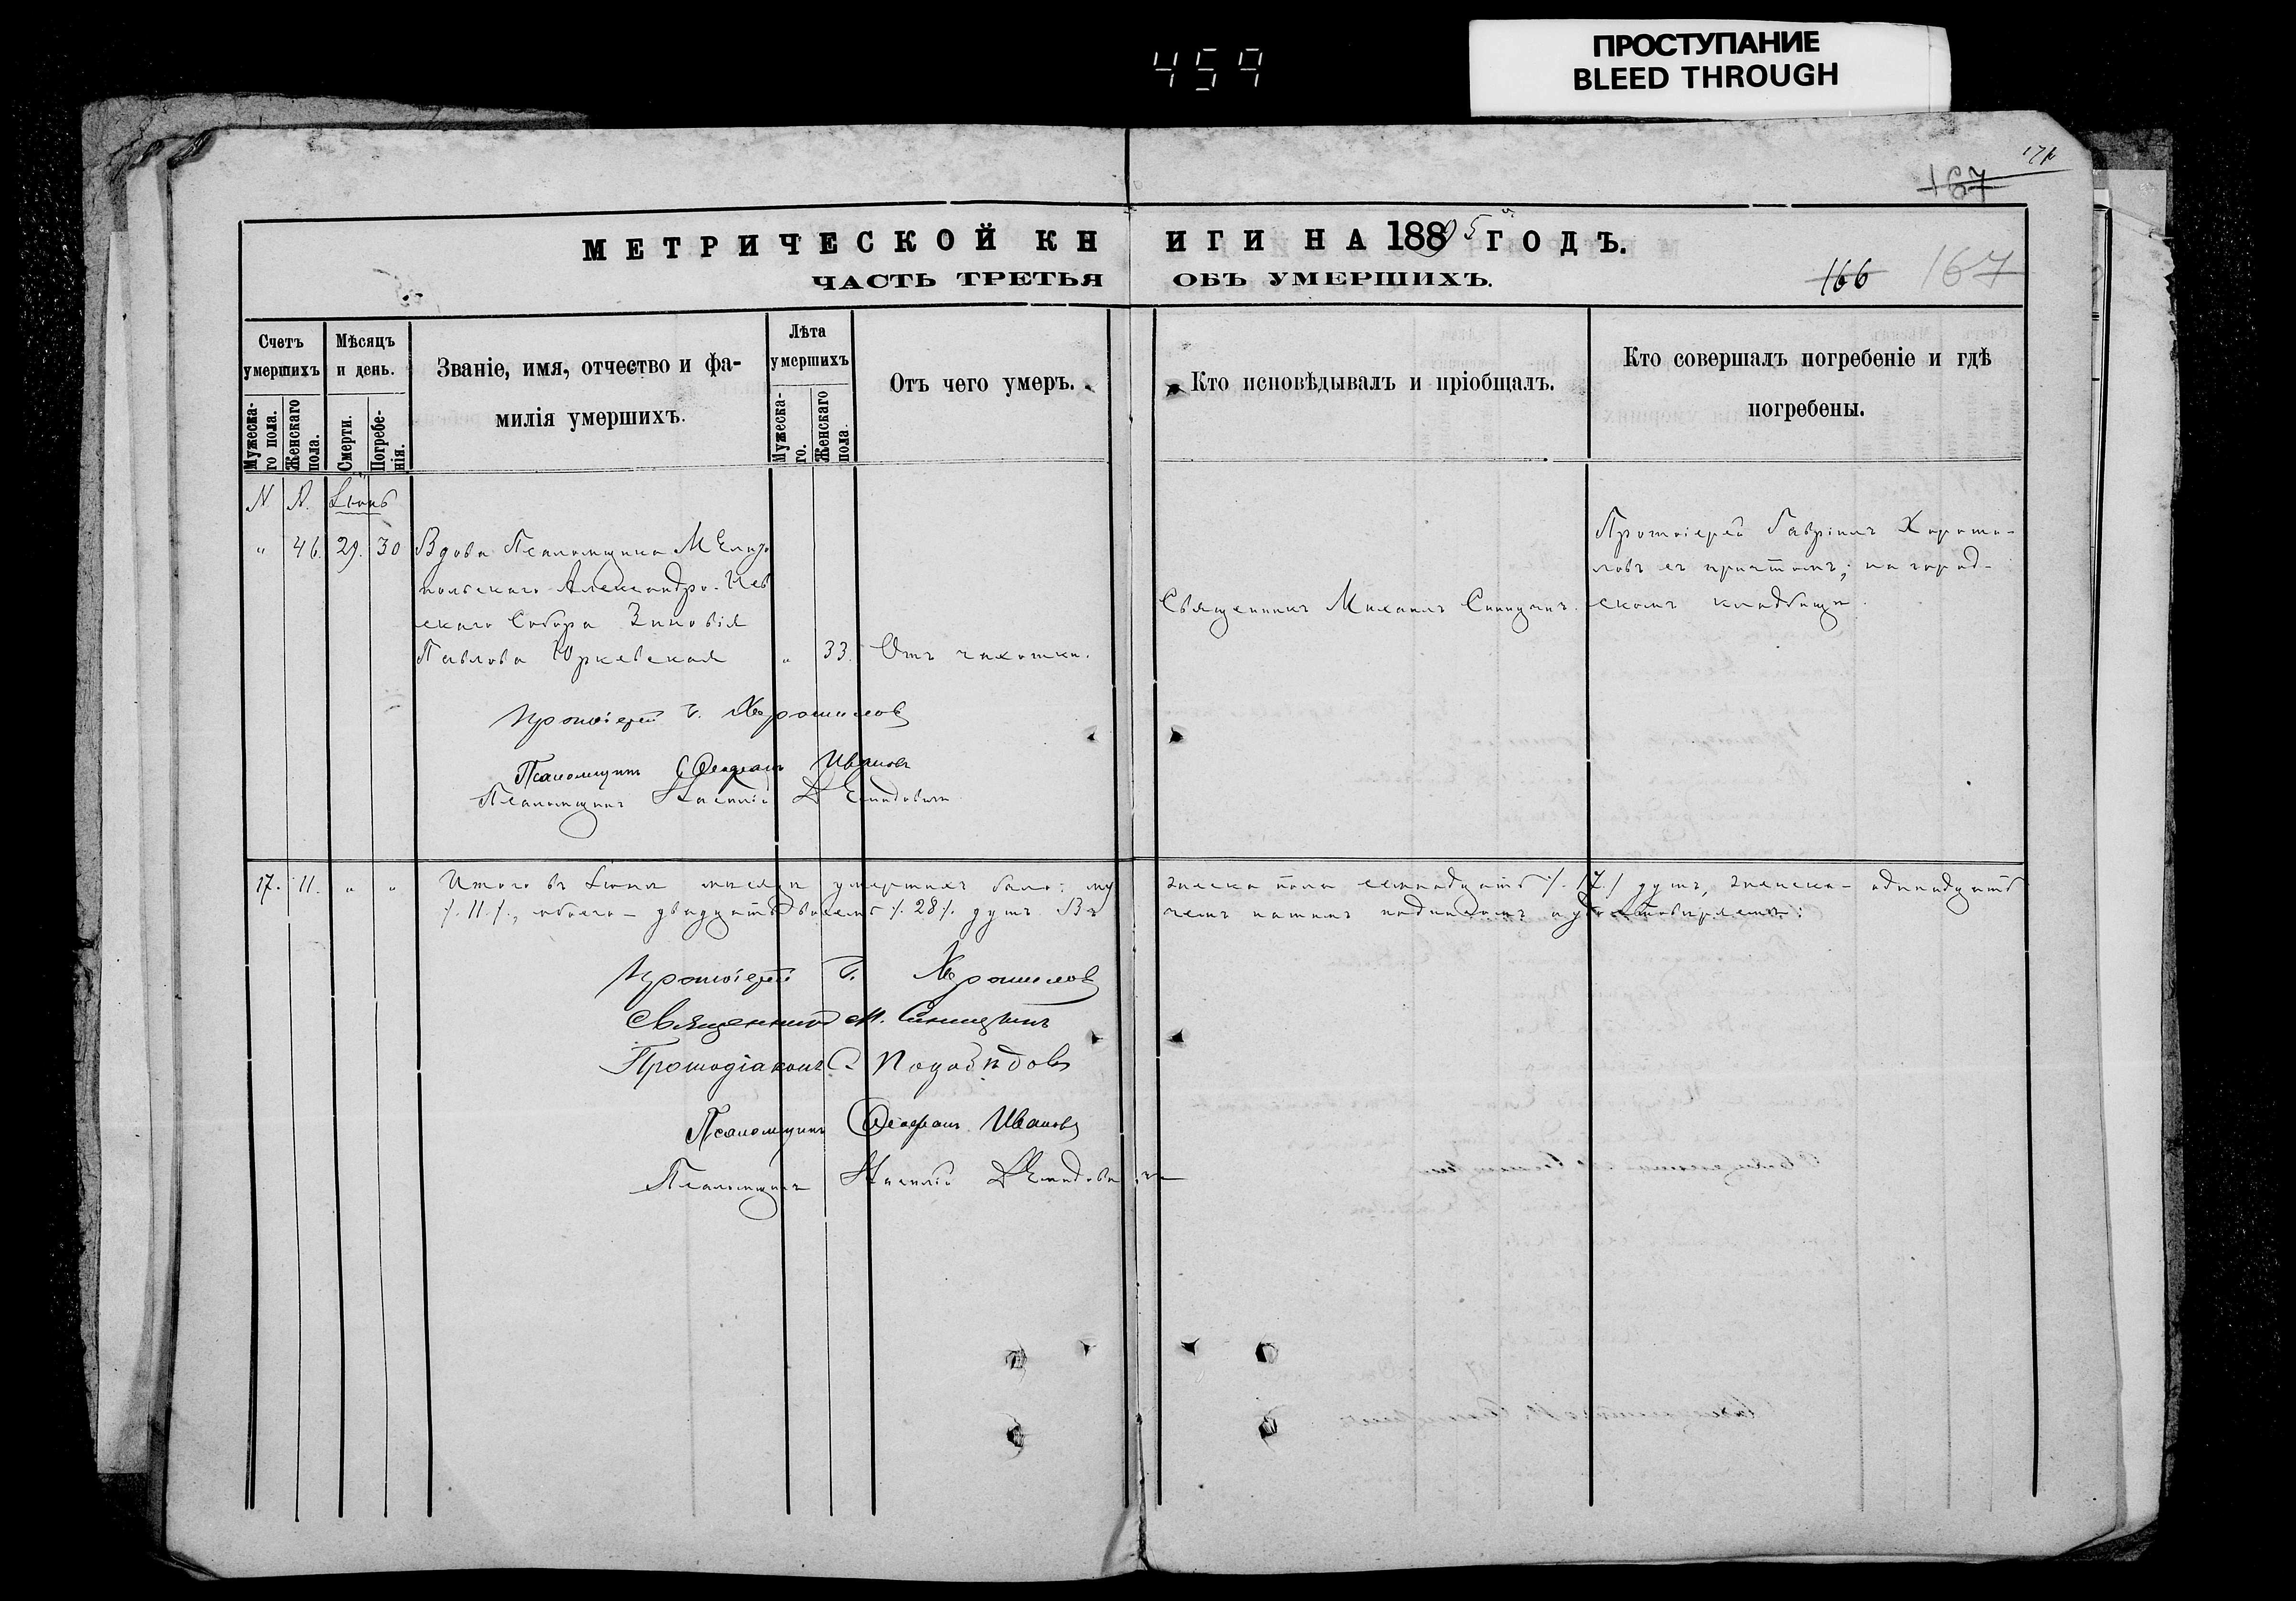 459
ПРОСТУПАНИЕ
BLEED THROUGH
167
МЕТРИЧЕСКОЙ КНИГИ НА 1885 ГОДЪ.
ЧАСТЬ ТРЕТЬЯ ОБЪ УМЕРШИХЪ.
166 167
Счетъ умершихъ
Мужескаго пола.
Женскаго пола.
Мѣсяцъ и день.
Смерти.
Погребенія.
Званіе, имя, отчество и фа-
милія умершихъ.
Лѣта умершихъ
Мужескаго.
Женскаго пола.
Отъ чего умеръ.
Кто исповѣдывалъ и пріобщалъ.
Кто совершалъ погребеніе и гдѣ
погребены.
N. N. Іюнь
" 46. 29. 30
Вдова Псаломщика Мелито
польскаго Александро-Нев
скаго Собора Зиновія
Павлова Юркевская
" 33. Отъ чахотки.
Священникъ Михаилъ Синицинъ.
Протоіерей Гавріилъ Хороши-
ловъ съ причтомъ; на город-
скомъ кладбищѣ.
Протоіерей Г. Хорошиловъ
Псаломщикъ Ѳеофанъ Ивановъ
Псаломщикъ Демидовичъ
17. 11. " " Итого въ Іюнѣ мѣсяцѣ умершихъ было: му жеска пола семнадцать /.17./ душъ, женска - одинадцать
/.11./, обоего - двадцать восемь /.28/. душъ. Въ чемъ нашимъ подписомъ и удостовѣряемъ:
Протоіерей Г. Хорошиловъ
Священникъ М. Синицынъ
Протодіаконъ
Псаломщикъ Ѳеофанъ Ивановъ
Псаломщикъ Демидовичъ